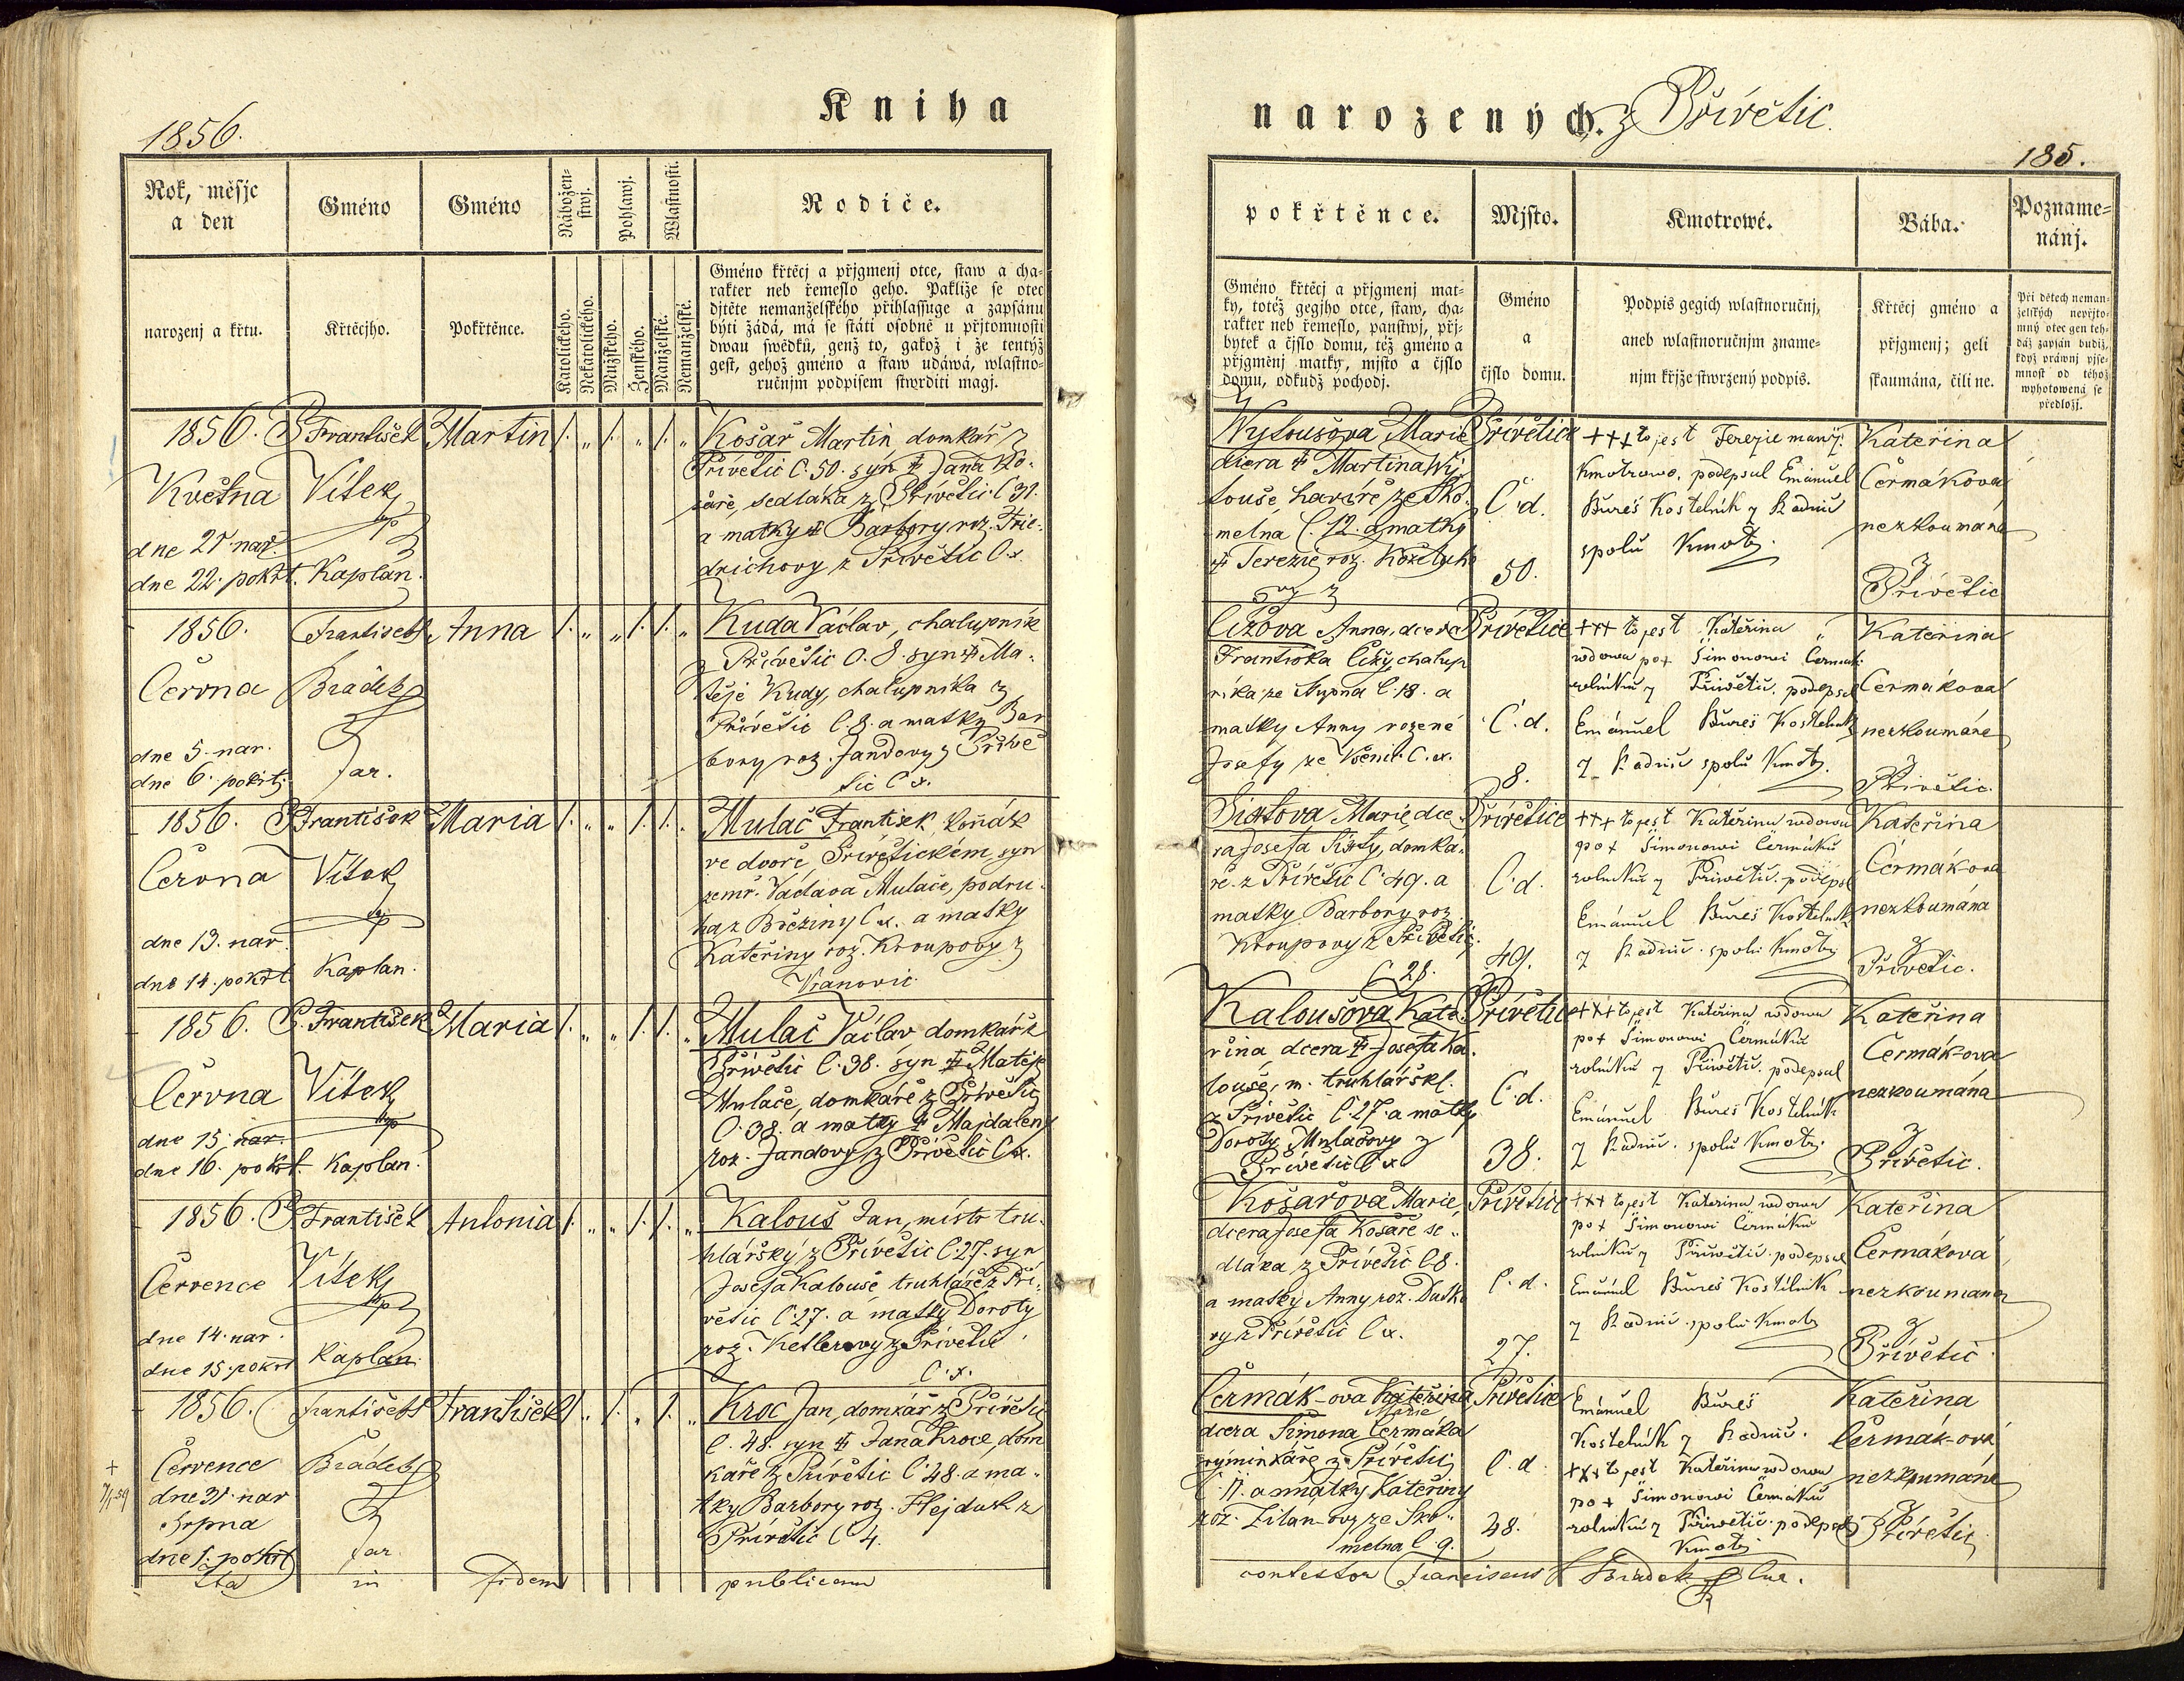 1856.
Kniha
Rok, měsjc
a den
Gméno
Gméno
Nábožen-
stwj.
Pohlawj.
Wlastnosti.
Rodiče.
narozenj a křtu.
Křtěcjho.
Pokřtěnce.
Katolického.
Nekatolického.
Mužského.
Ženského.
Manželské.
Nemanželské.
Gméno křtěcj a přjgmenj otce, staw a cha-
rakter neb řemeslo geho. Pakliže se otec
djtěte nemanželského přihlassuge a zapsánu
býti žádá, má se státi osobně u přjtomnosti
dwau swědků, genž to, gakož i že tentýž
gest, gehož gméno a staw udáwá, wlastno-
ručnjm podpisem stwrditi magj.
1856.
Května
dne 21. nar.
dne 22. pokřt.
P. František
Vítek
mp
Kaplan.
Martin
Košař Martin domkář z
Přívětic č. 50. syn † Jana Ko-
šaře, sedláka z Přívětic č 31.
a matky † Barbory roz. Frie-
drichovy z Přívětic č. x.
1856.
Června
dne 5. nar.
dne 6. pokřtj.
František
Brádek
far.
Anna
Kuda Václav, chalupník
z Přívětic č. 8. syn † Ma-
těje Kudy, chalupníka z
Přívětic č. 8. a matky Bar
bory roz. Jandovy z Přívě
tic č x.
1856.
Června
dne 13. nar.
dne 14. pokřt
P František
Vítek
mp
Kaplan.
Maria
Mulač František, koňák
ve dvoře Přívětickém, syn
zemř. Václava Mulače, podru-
ha z Březiny č x. a matky
Kateřiny roz. Kroupovy z
Vranovic.
1856.
Června
dne 15. nar.
dne 16. pokřt.
P. František
Vítek
mp
Kaplan.
Maria
Mulač Václav domkář z
Přívětic č. 38. syn † Matěje
Mulače, domkáře z Přívětic
č. 38. a matky † Majdaleny
roz. Jandovy z Přívětic č x.
1856.
Července
dne 14. nar.
dne 15. pokřt
P František
Vítek
mp
Kaplan.
Antonia
Kalouš Jan, mistr tru-
hlářský z Přívětic č. 27. syn
Josefa Kalouše truhláře z Pří-
větic č. 27. a matky Doroty
roz. Ketlerovy z Přívětic
č. x.
1856.
Července
dne 31. nar
Srpna
dne 1. pokřt
František
Brádek
far.
František
Kroc Jan, domkář z Přívětic
č. 48. syn † Jana Kroce, dom
káře z Přívětic č. 48. a ma-
tky Barbory roz. Hejduk z
Přívětic č 4.
Ita in fidem publicam
narozených. z Přívětic.
185.
pokřtěnce.
Mjsto.
Kmotrowé.
Bába.
Pozname-
nánj.
Gméno křtěcj a přjgmenj mat-
ky, totéž gegjho otce, staw, cha-
rakter neb řemeslo, panstwj, přj-
bytek a čjslo domu, též gméno a
přjgmenj matky, mjsto a čjslo
domu, odkudž pochodj.
Gméno
a
čjslo domu.
Podpis gegich wlastnoručnj,
aneb wlastnoručnjm zname-
njm křjže stwrzený podpis.
Křtěcj gméno a
přjgmenj; geli
zkaumána, čili ne.
Při dětech neman-
želských nepřjto-
mný otec gen teh-
dáž zapsán budiž,
když práwnj pjse-
mnost od téhož
wyhotowená se
předložj.
Wytoušova Marie
dcera † Martina Wy-
touše havíře ze Sko-
melna č. 12. a matky
† Terezie roz. Koželuho
vy z
Přívětice
č. d.
50.
+++ to jest Terezie manž.
Kmotrowo, podepsal Emánuel
Bureš Kostelník z Radnic
spolu Kmotr.
Kateřina
Čermáková
nezkoumaná
z
Přívětic
Čížova Anna, dcera
Františka Čížy, chalup
níka ze Stupna č. 18. a
matky Anny rozené
Josefy ze Všenic č. x.
Přívětice
č. d.
8.
+++ to jest Kateřina
wdowa po + Šimonowi Čermák
rolníku z Přiwětic. podepsal
Emánuel Bureš Kostelník
z Radnic spolu Kmotr.
Kateřina
Čermáková
nezkoumána
z Přívětic.
Sixtova Marie, dce-
ra Josefa Sixty, domká-
ře z Přívětic č. 49. a
matky Barbory roz.
Kroupovy z Přívětic.
č 28.
Přívětice
č. d.
49.
+++ to jest Kateřina wdowa
po + Šimonowi Čermáku
rolníku z Přiwětic. podepsal
Emánuel Bureš Kostelník
z Radnic. spolu Kmotr.
Kateřina
Čermák-ova
nezkoumána
z
Přívětic.
Kaloušova Kate-
řina, dcera † Josefa Ka-
louše, m. truhlářské.
z Přívětic č. 27. a matky
Doroty Mulačovy z
Přívětic č x
Přívětice
č. d.
38.
+++ to jest Kateřina wdowa
po + Šimonowi Čermáku
rolníku z Přiwětic. podepsal
Emánuel Bureš Kostelník
z Radnic. spolu Kmotr.
Kateřina
Čermák-ova
nezkoumána
z
Přívětic.
Košařova Marie,
dcera Josefa Košaře se-
dláka z Přívětic č 8.
a matky Anny roz. Dusko
vy z Přívětic č x.
Přívětice
č. d.
27.
+++ to jest Kateřina wdowa
po + Šimonowi Čermáku
rolníku z Přiwětic. podepsal
Emánuel Bureš Kostelník
z Radnic. spolu Kmotr
Kateřina
Čermáková
nezkoumána
z
Přívětic.
Čermák-ova Kateřina
Marie
dcera Šimona Čermáka
výminkáře z Přívětic
č. 11. a matky Kateřiny
roz. Zilan-ovy ze Sko-
melna č. 9.
Přívětice
č. d.
48.
Emánuel Bureš
Kostelník z Radnic.
+++ to jest Kateřina wdowa
po + Šimonowi Čermáku
rolníku z Přiwětic. podepsal
Kmotr
Kateřina
Čermák-ová
nezkoumána
z
Přívětic
contestor Franciscus Brádek Cur.